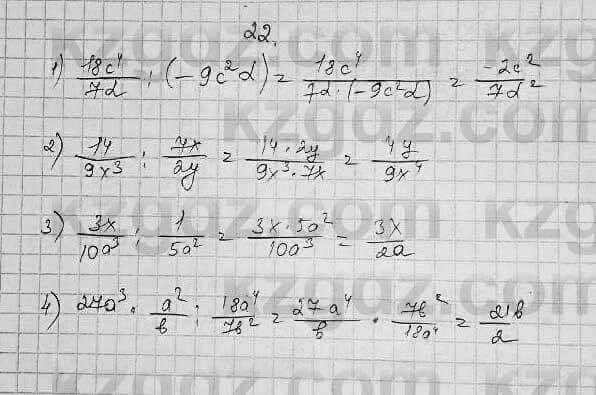 22.
1) 18c⁴/7d : (-9c²d) = 18c⁴/7d·(-9c²d) = -2c²/7d²
2) 14/9x³ : 7x/2y = 14·2y/9x³·7x = 4y/9x⁴
3) 3x/10a³ : 1/5a² = 3x·5a²/10a³ = 3x/2a
4) 27a³ · a²/b : 18a⁴/7b² = 27a⁴/b · 7b²/18a⁴ = 21b/2
kzgdz.com